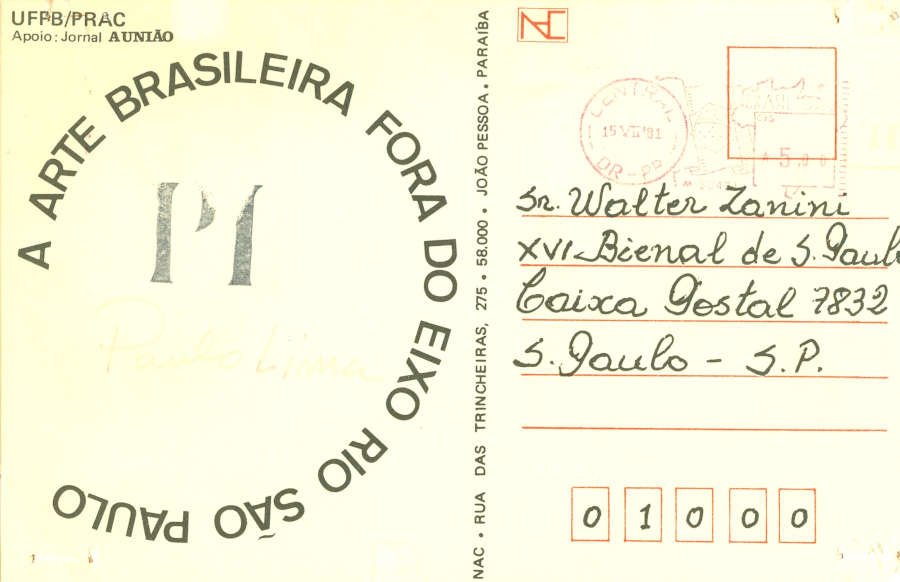 UFPB/PRAC
Apoio: Jornal A UNIÃO
A ARTE BRASILEIRA FORA DO EIXO RIO SÃO PAULO
Paulo Lima
NAC • RUA DAS TRINCHEIRAS, 275 • 58.000 • JOÃO PESSOA • PARAÍBA
NAC
CENTRAL
15 VII 81
DR-PB
BRASIL
5,00
Sr. Walter Zanini
XVI Bienal de S. Paulo
Caixa Postal 7832
S. Paulo - S.P.
0 1 0 0 0